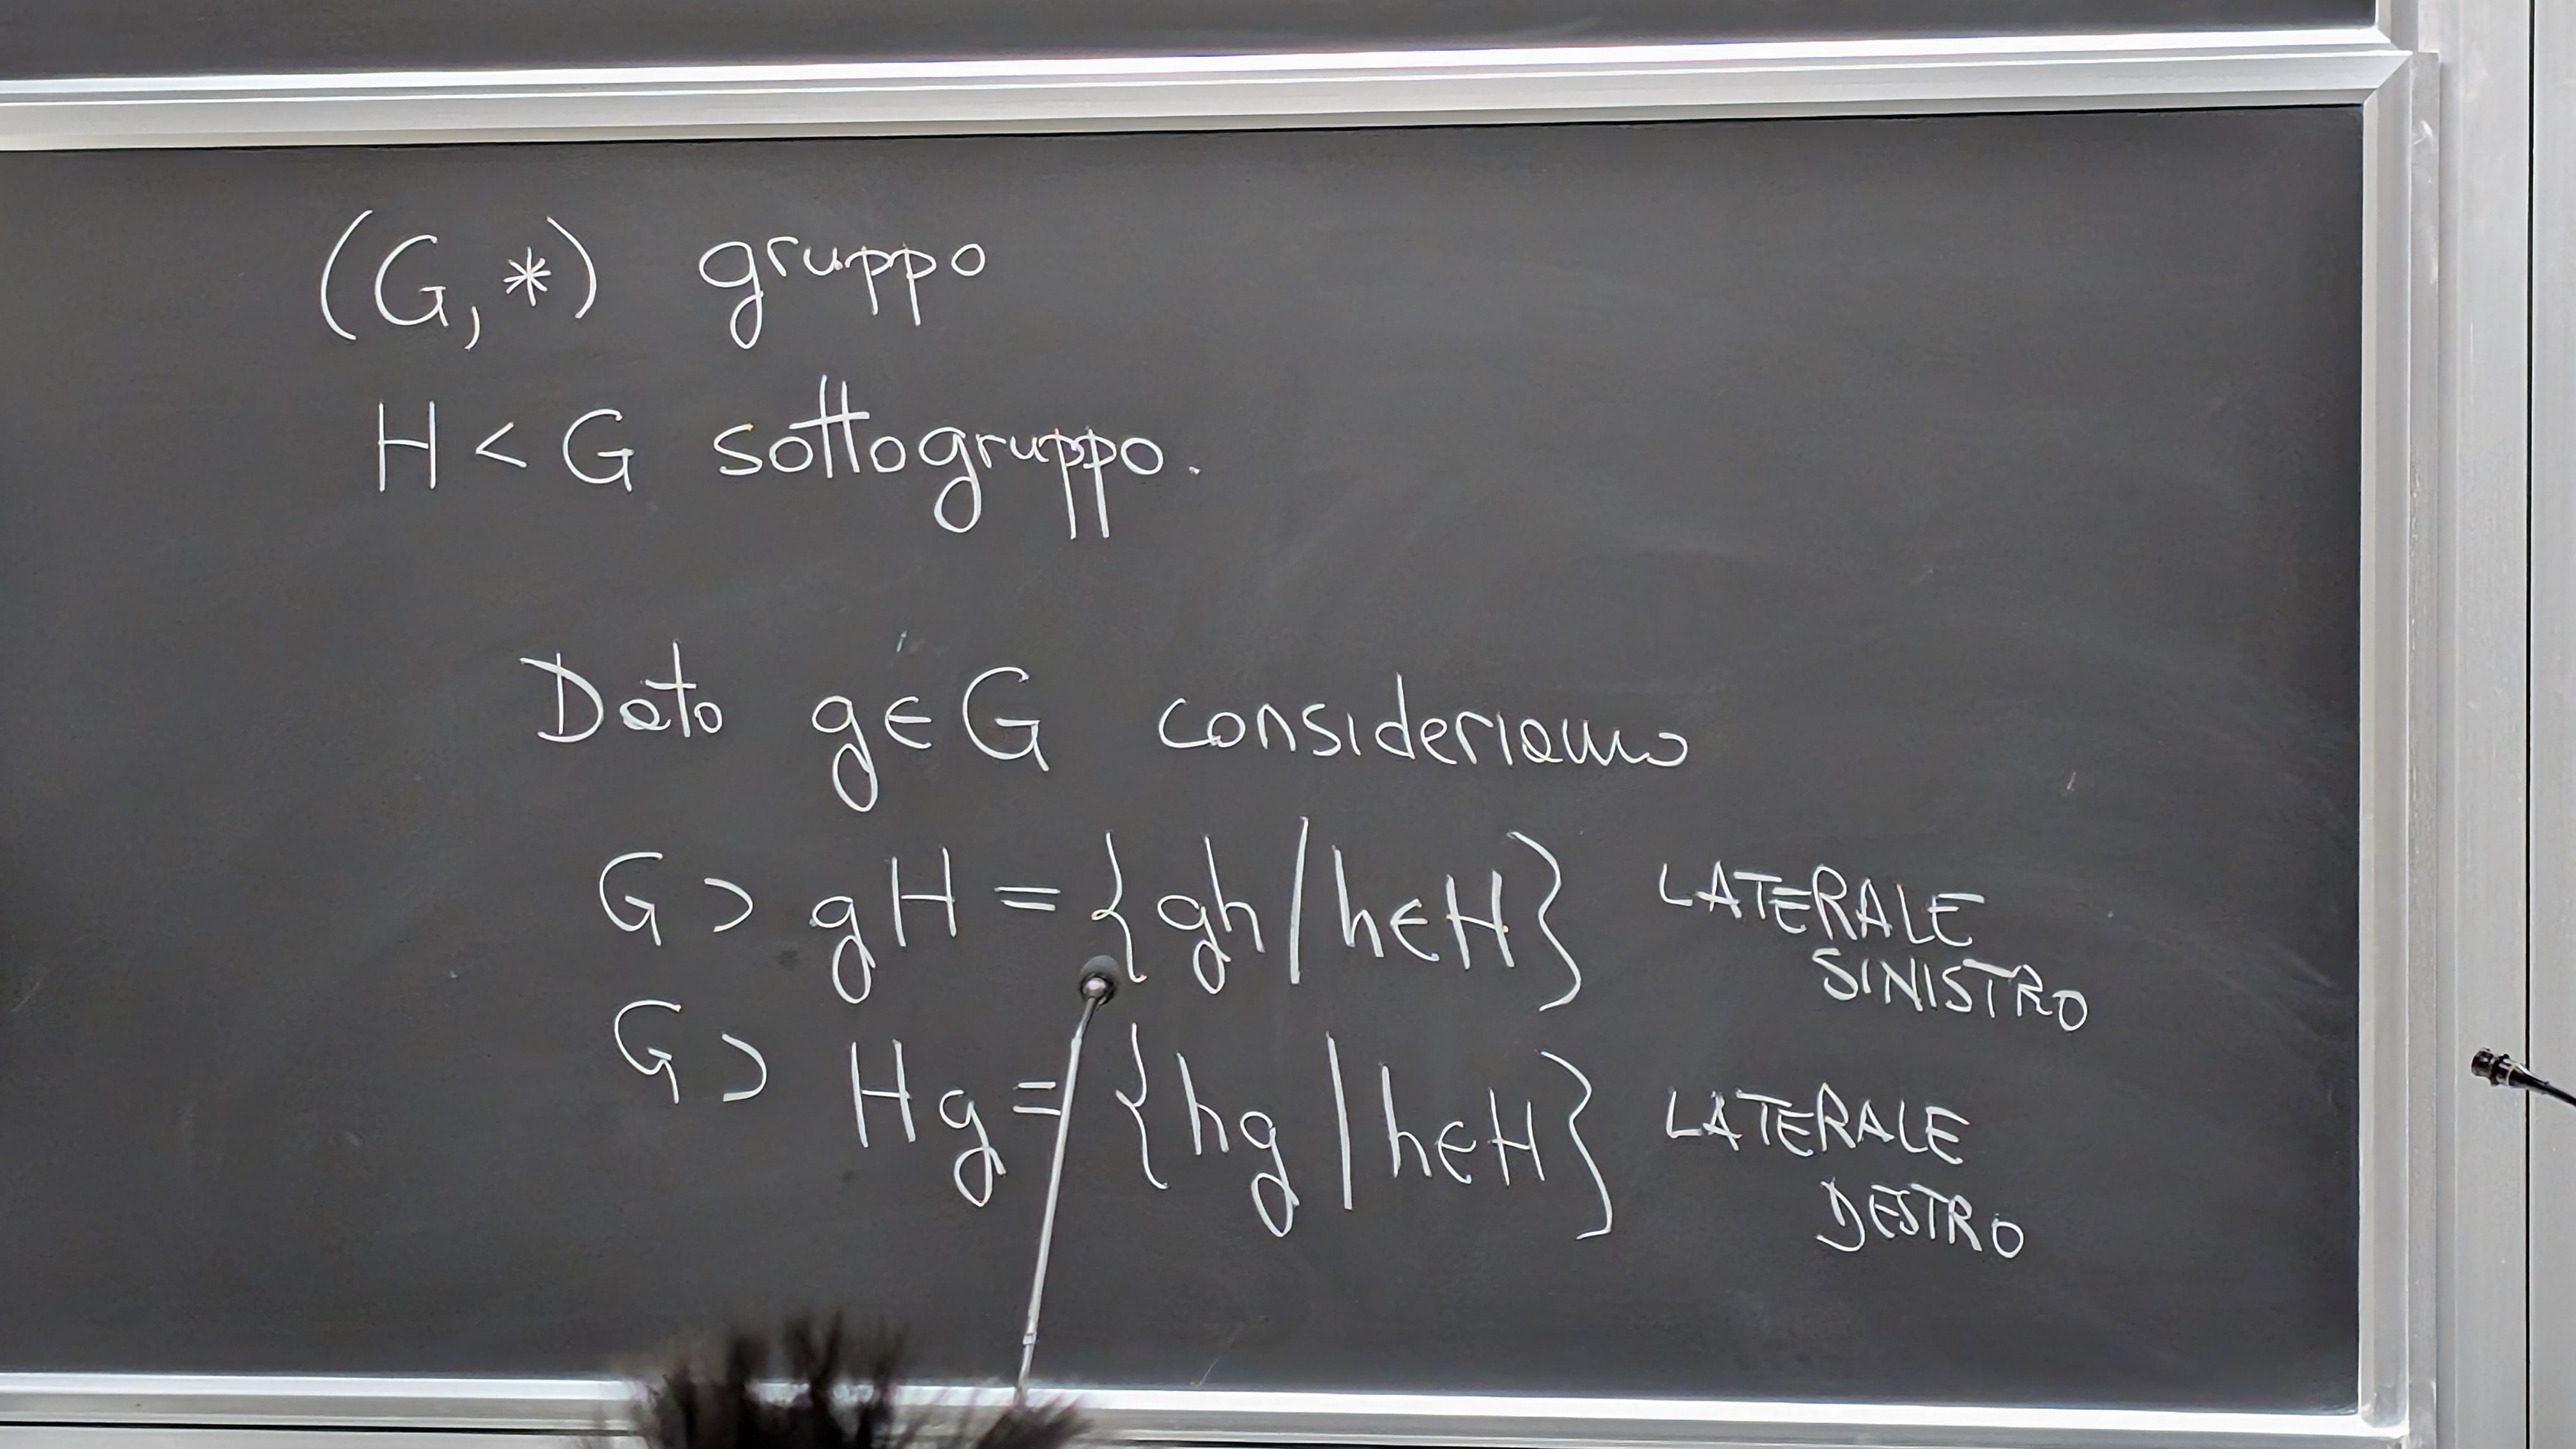 (G, *) gruppo
H < G sottogruppo.
Dato g∈G consideriamo
G ⊃ gH = {gh | h∈H} LATERALE
SINISTRO
G ⊃ Hg = {hg | h∈H} LATERALE
DESTRO